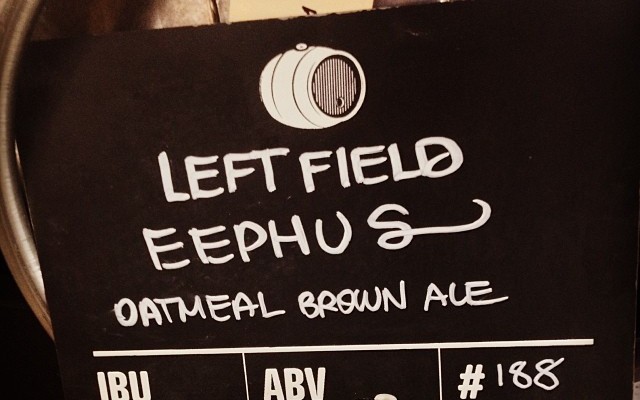 LEFT FIELD
EEPHUS
OATMEAL BROWN ALE
IBU ABV # 188